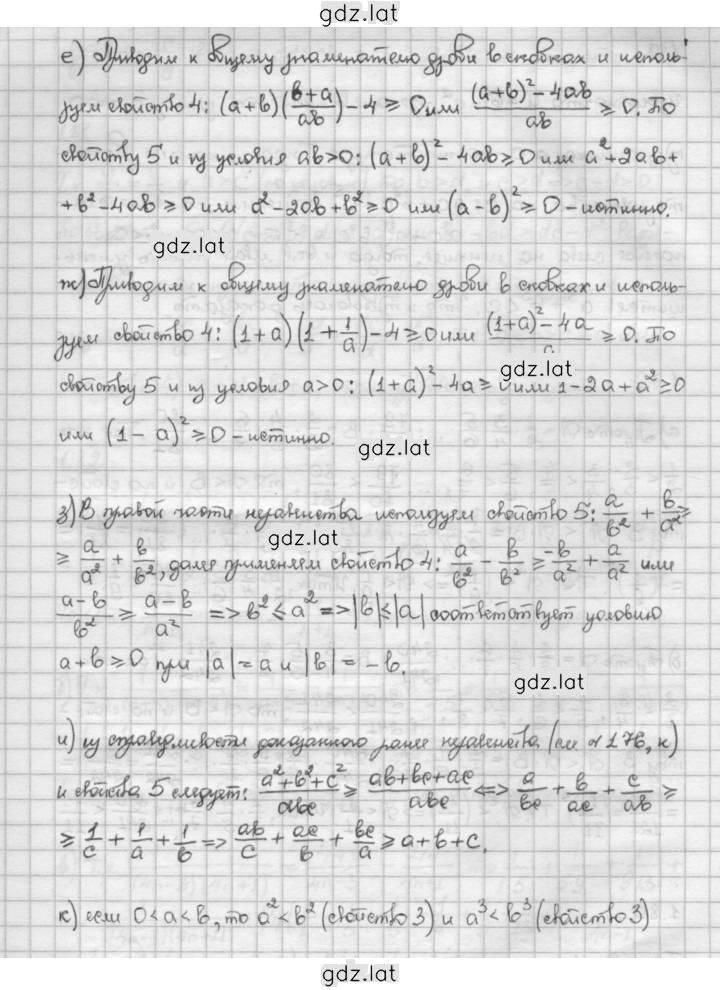 gdz.lat
е) Приводим к общему знаменателю дроби в скобках и исполь-
зуем свойство 4: (a+b)((b+a)/ab)-4 ≥ 0 или ((a+b)²-4ab)/ab ≥ 0. По
свойству 5 и из условия ab>0: (a+b)²-4ab≥0 или a²+2ab+
+b²-4ab≥0 или a²-2ab+b²≥0 или (a-b)²≥0 - истинно.
gdz.lat
ж) Приводим к общему знаменателю дроби в скобках и исполь-
зуем свойство 4: (1+a)(1+1/a)-4≥0 или ((1+a)²-4a)/a ≥ 0. По
gdz.lat
свойству 5 и из условия a>0: (1+a)²-4a≥0 или 1-2a+a²≥0
или (1-a)²≥0 - истинно.
gdz.lat
з) В правой части неравенства используем свойство 5: a/b² + b/a² ≥
gdz.lat
≥ a/a² + b/b², далее применяем свойство 4: a/b² - b/b² ≥ -b/a² + a/a² или
(a-b)/b² ≥ (a-b)/a² => b² ≤ a² => |b|≤|a| соответствует условию
a+b≥0 при |a|=a и |b|=-b.
gdz.lat
и) из справедливости доказанного ранее неравенства (см №176, к)
и свойства 5 следует: (a²+b²+c²)/abc ≥ (ab+bc+ac)/abc <=> a/bc + b/ac + c/ab ≥
≥ 1/c + 1/a + 1/b => ab/c + ac/b + bc/a ≥ a+b+c.
к) если 0<a<b, то a²<b² (свойство 3) и a³<b³ (свойство 3)
gdz.lat